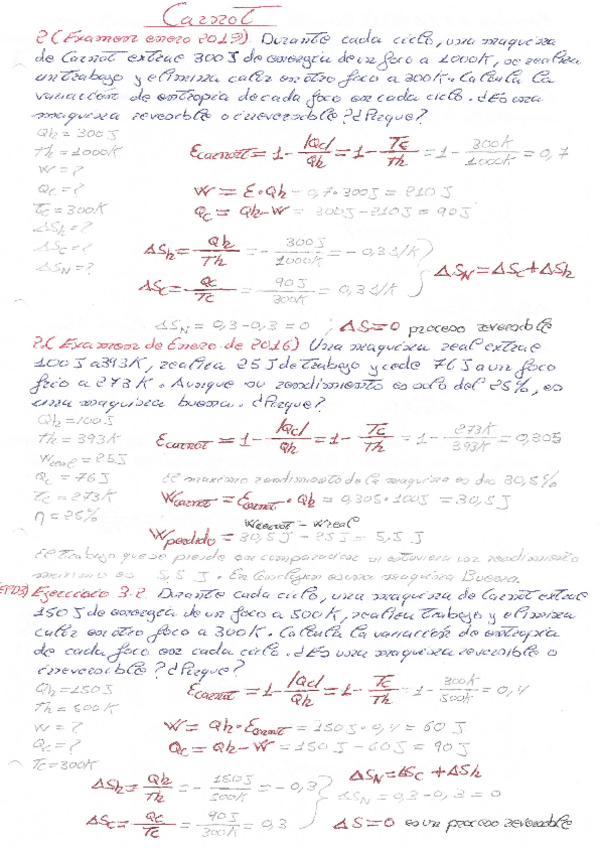 Carnot
2 (Examen enero 2019) Durante cada ciclo, una maquina
de Carnot extrae 300J de energía de un foco a 1000K, se realiza
un trabajo y elimina calor en otro foco a 300K. Calcula la
variación de entropia de cada foco en cada ciclo. ¿Es una
maquina reversible o irreversible? ¿Porque?
Qh = 300J
Th = 1000K
W = ?
Qc = ?
Tc = 300K
ΔSh = ?
ΔSc = ?
ΔSN = ?
Ecarnot = 1 - |Qc|/Qh = 1 - Tc/Th = 1 - 300K/1000K = 0,7
W = E·Qh = 0,7·300J = 210J
Qc = Qh - W = 300J - 210J = 90J
ΔSh = Qh/Th = - 300J/1000K = -0,3J/K
ΔSc = Qc/Tc = 90J/300K = 0,3J/K
ΔSN = ΔSc + ΔSh
ΔSN = 0,3 - 0,3 = 0 ; ΔS = 0 proceso reversible
2.(Examen de Enero de 2016) Una maquina real extrae
100J a 393K, realiza 25J de trabajo y cede 76J a un foco
frio a 273K. Aunque su rendimiento es solo del 25%, es
una maquina buena. ¿Porque?
Qh = 100J
Th = 393K
Wreal = 25J
Qc = 76J
Tc = 273K
η = 25%
Ecarnot = 1 - |Qc|/Qh = 1 - Tc/Th = 1 - 273K/393K = 0,305
El maximo rendimiento de la maquina es de 30,5%
Wcarnot = Ecarnot · Qh = 0,305·100J = 30,5J
Wcarnot - Wreal
Wperdido = 30,5J - 25J = 5,5J
El trabajo que se pierde en comparacion si estuviera un rendimiento
maximo es 5,5J. En es una maquina Buena.
EPD3) Ejercicio 3.2. Durante cada ciclo, una maquina de Carnot extrae
150J de energía de un foco a 500K, realiza trabajo y elimina
calor en otro foco a 300K. Calcula la variacion de entropia
de cada foco en cada ciclo. ¿Es una maquina reversible o
irreversible? ¿Porque?
Qh = 150J
Th = 500K
W = ?
Qc = ?
Tc = 300K
Ecarnot = 1 - |Qc|/Qh = 1 - Tc/Th = 1 - 300K/500K = 0,4
W = Qh·Ecarnot = 150J·0,4 = 60J
Qc = Qh - W = 150J - 60J = 90J
ΔSh = Qh/Th = - 150J/500K = -0,3
ΔSc = Qc/Tc = 90J/300K = 0,3
ΔSN = ΔSc + ΔSh
ΔSN = 0,3 - 0,3 = 0
ΔS = 0 es un proceso reversible